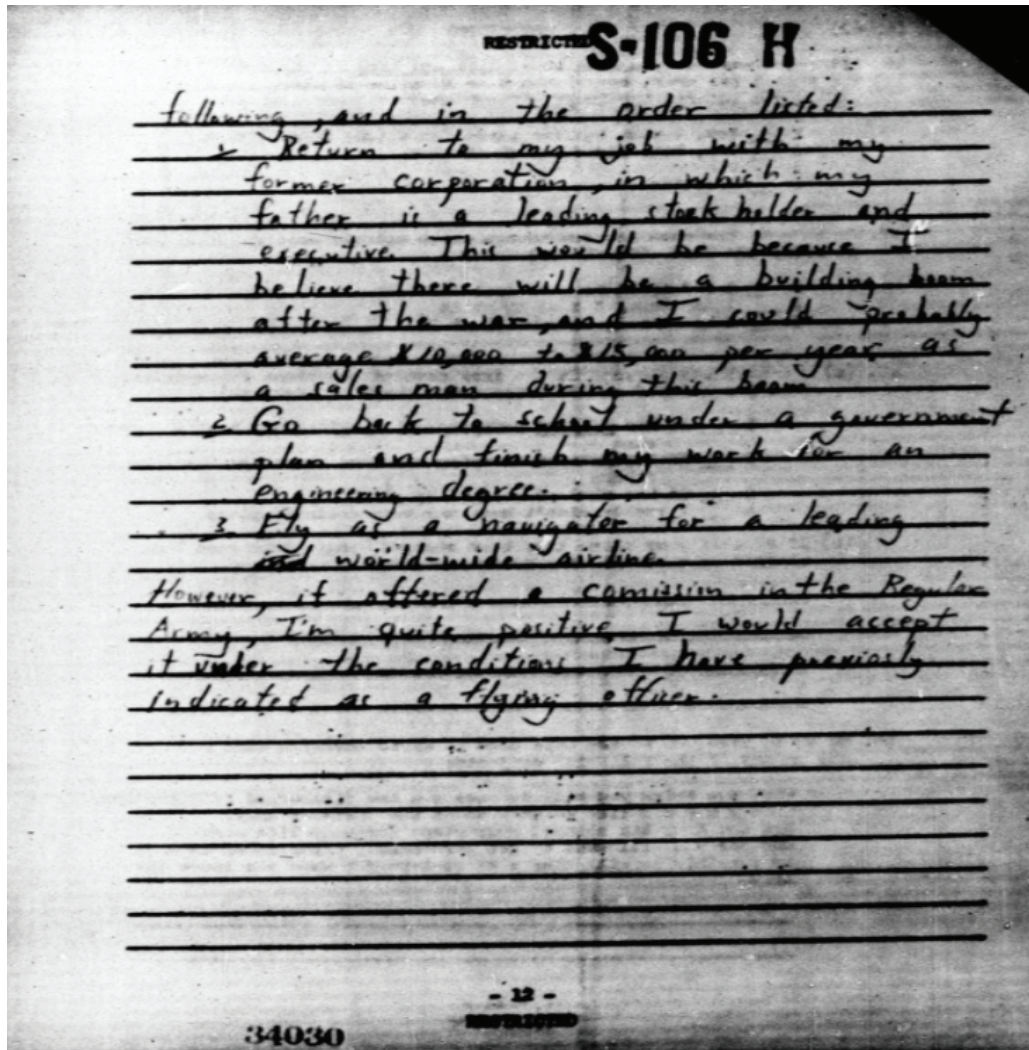 RESTRICTED S-106 H
following, and in the order listed:
1. Return to my job with my
former corporation, in which my
father is a leading stock holder and
executive. This would be because I
believe there will be a building boom
after the war, and I could probably
average $10,000 to $15,000 per year as
a sales man during this boom
2. Go back to school under a government
plan and finish my work for an
engineering degree.
3. Fly as a navigator for a leading
world-wide airline.
However, if offered a comission in the Regular
Army, I'm quite positive I would accept
it under the conditions I have previosly
indicated as a flying officer.
- 12 -
RESTRICTED
34030